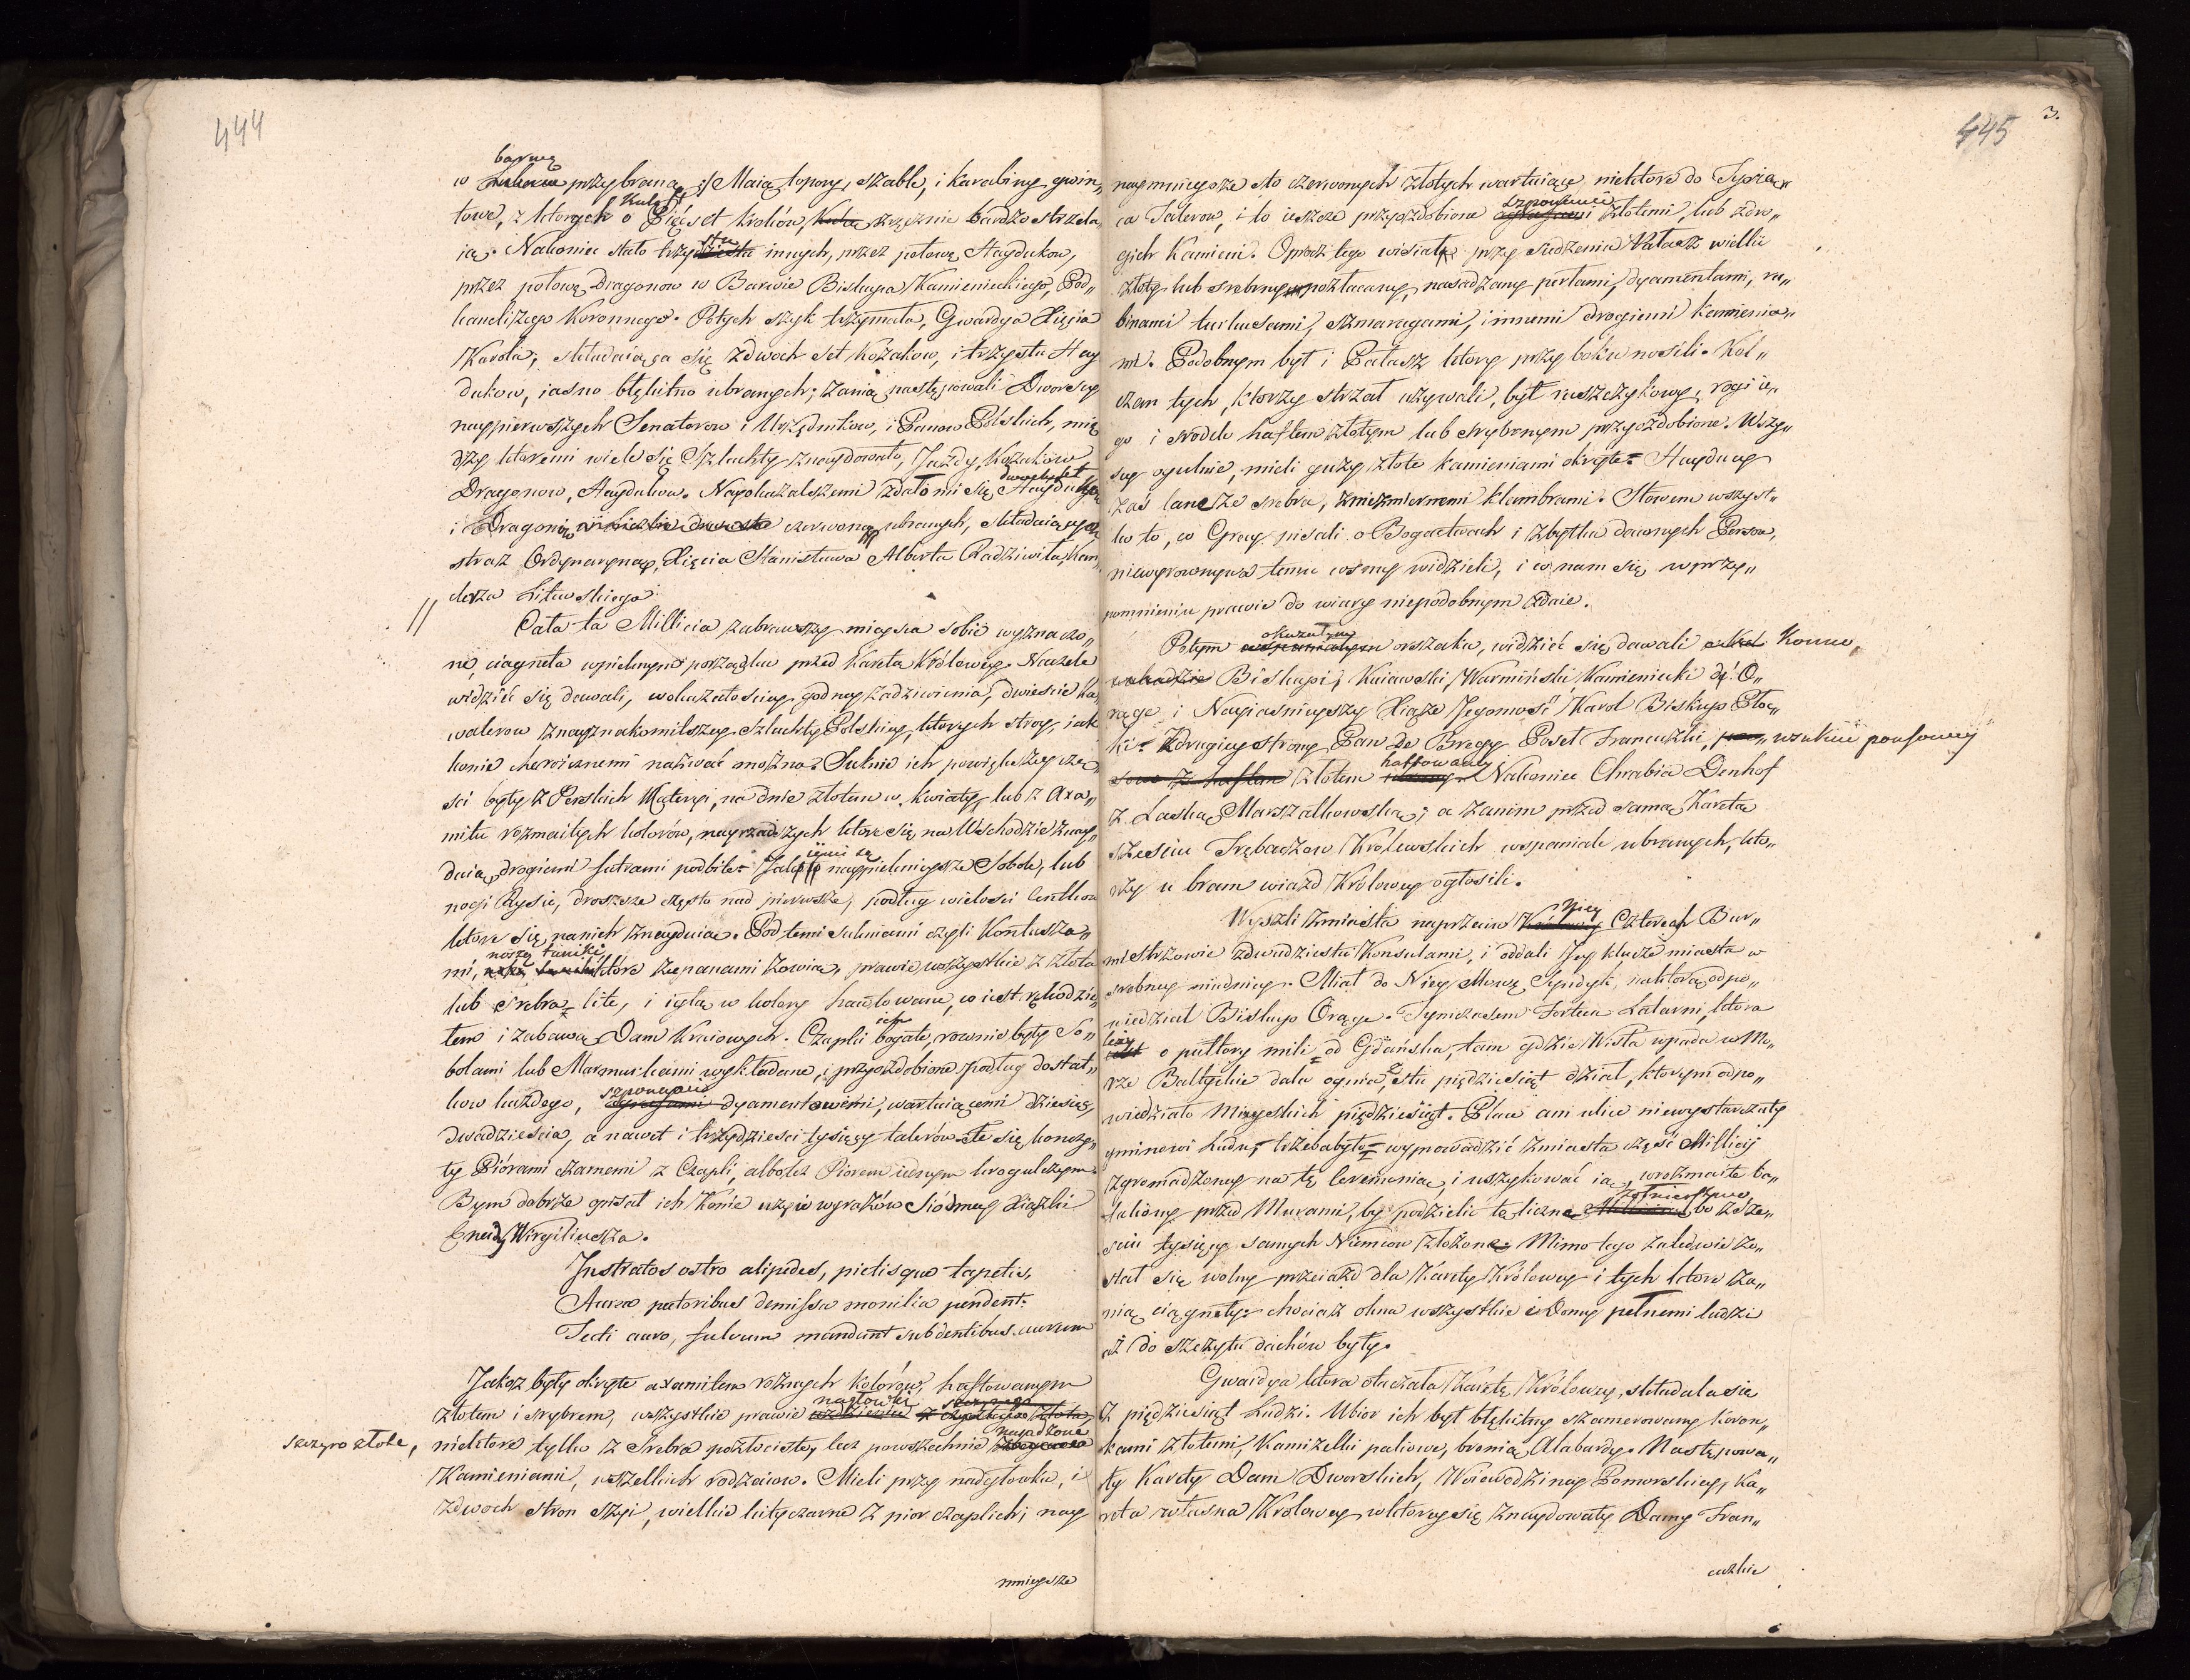 444
barwą
w przybraną :/ Maią topory, szable, i karabiny gwin„
Kulą
towe, z ktorych o Pięćset krokow, zręcznie bardzo strzela„
ią. Nakoniec stało trzy sta innych, przez połowę Haydukow,
przez połowę Dragonow w Barwie Biskupa Kamienieckiego, Pod„
kanclizego Koronnego. Potych szyk trzymała, Gwardya Xięcia
Karola, składaiąca się z dwoch set Kozakow, i trzystu Hay
dukow, iasno błękitno ubranych; zanią następowali Dworscy
naypierwszych Senatorow i Urzędnikow, i Panow Polskich, mię
dzy ktoremi wiele się Szlachty znaydowało, Jazdy, Kozakow
Dragonow, Haydukow. Nayokazalszemi zdało mi się Hayduków
i Dragonów czerwono ubranych, składaiących
straż Ordynaryną, Xięcia Stanisława Alberta Radziwiła, Kan„
clerza Litewskiego.
// Cała ta Millicia zabrawszy mieysca sobie wyznaczo„
ne, ciągneła wpieknym porządku przed Kareta Królowey. Naczele
widzieć się dawali, wokazałościey godney zadziwienia, dwieście ka
walerow znayznakomitszey Szlachty Polskiey, ktorych stroy, iak
konie heroicznemi nazwać można. Suknie ich powiększey czę
sci były z Perskich Materyi, na dnie złotem w kwiaty, lub z Axa„
mitu rozmaitych kolorów, nayrzadszych ktore się na Wschodzie znay„
duią, drogiemi futrami podbite. naypięknieysze Sobole, lub
nogi Rysie, droższe często nad pierwsze, podług wielości Cętkow
ktore się na nich znayduią. Pod temi sukniami czyli Kontusza„
noszą tuniki
mi, które zupanami zowią, prawie wszystkie z złota
lub srebra lite, i igłą w kolory haftowane, co iest rękodzie„
łem i zabawą Dam Kraiowych. Czapki ich bogate, rownie były So„
bolami lub Marmurkami wykładane, i przyozdobione podług dostat„
szponami
kow każdego, dyamentowemi, wartuiącemi dziesięć,
dwadzieścia, a nawet i trzydzieści tysięcy talerów. Te się kończy„
ły Piórami czarnemi z Czapli, albo też Piorem iednym krogulczym.
Bym dobrze opisał ich Konie użyię wyrazów Siódmey Xiążki
Eneidy Wirgiliusza.
Instratos ostro alipedes, pictisque tapetis,
Aurea pectoribus demissa monilia pendent:
Tecti auro, fulvum mandunt sub dentibus aurum
Jakoż były okryte axamitem roznych Kolórów, haftowanym
nagłowki
złotem i srybrem, wszystkie prawie
szczyro złote, niektore tylko z Srebra pozłociste, lecz powszechnie
Kamieniami, wszelkich rodzaiow. Mieli przy nadgłowku, i
zdwoch stron szyi, wielkie kity czarne z pior czaplich; nay
mnieysze
445
3.
naymnieysze sto czerwonych złotych wartuiące niektore do Tysią„
szponami
ca Talerow, i to ieszcze przyozdobione złotemi, lub z dro„
gich Kamieni. Oprócz tego wisiał przy siedzeniu Pałasz wielki
złoty lub srebrny pozłacany, nasadzany perłami, dyamentami, ru„
binami turkusami, szmaragami, i innemi drogiemi kamienia„
mi. Podobnym był i Pałasz ktory przy boku nosili. Koł„
czan tych, którzy strzał używali, był ruszczykowy, rogi ie„
go i srodek haftem złotym lub srybrnym przyozdobione. Wszy„
scy ogulnie, mieli guzy złote kamieniami okryte. Hayducy
zaś lane ze srebra, z niezmiernemi klambrami. Słowem wszyst„
ko to, co Grecy pisali o Bogactwach i zbytku dawnych Persow,
niewyrownywa temu cosmy widzieli, i co nam się w przy„
pomnieniu prawie do wiary niepodobnym zdaie.
okazałym
Potym orszaku, widzieć się dawali Konno,
Biskupi; Kuiawski, Warmiński, Kamieniecki dị O„
rąge i Nayiasnieyszy Xiąże Jegomość Karol Biskup Płoc„
ki. Z drugiey strony Pan De Bregy Poseł Francuzki, w sukni ponsowey
haftowaney
złotem Nakoniec Chrabia Denhof
z Laską Marszałkowską; a zanim przed samą Karetą
sześciu Trębaczow Królewskich wspaniale ubranych, kto„
rzy u bram wiazd Królowey ogłosili.
Wyszli zmiasta naprzeciw Niey Czterech Bur„
mistrzowie zdwudziestu Konsulami, i oddali Jey klucze miasta w
srebney miednicy. Miał do Niey Mowę Syndyk, naktorą odpo„
wiedział Biskup Orąge. Tymczasem Forteca Latarni, ktora
leży o pułtory mili od Gdańska, tam gdzie Wisła wpada w Mo„
rze Baltyckie dała ognia, ze stu pięćdziesiąt dział, którym odpo„
wiedziało Mieyskich pięćdziesiąt. Place ani ulice niewystarczały
gminowi Ludu, trzeba było wyprowadzić zmiasta część Millicij
zgromadzoney na tę ceremonią, i uszykować ią, w rozmaite ba„
żołnierstwo
taliony przed Murami, by podzielić tę liczne bo z sze„
sciu tysięcy samych Niemcow złożone. Mimo tego zaledwie zo„
stał się wolny przeiazd dla Karety Królowey i tych ktore za„
nią ciągneły: chociaż okna wszystkie i Domy pełnemi ludzi
aż do szczytu dachów były.
Gwardya ktora otaczała Karetę Królowey, składała się
z pięćdziesiąt Ludzi. Ubior ich był błękitny szamerowany koron„
kami złotemi, Kamizelki paliowe, bronią Alabardy. Następowa„
ły Karety Dam Dworskich, Woiewodziney Pomorskiey, Ka„
reta własna Królowey, wktorey się znaydowały Damy Fran„
cuzkie